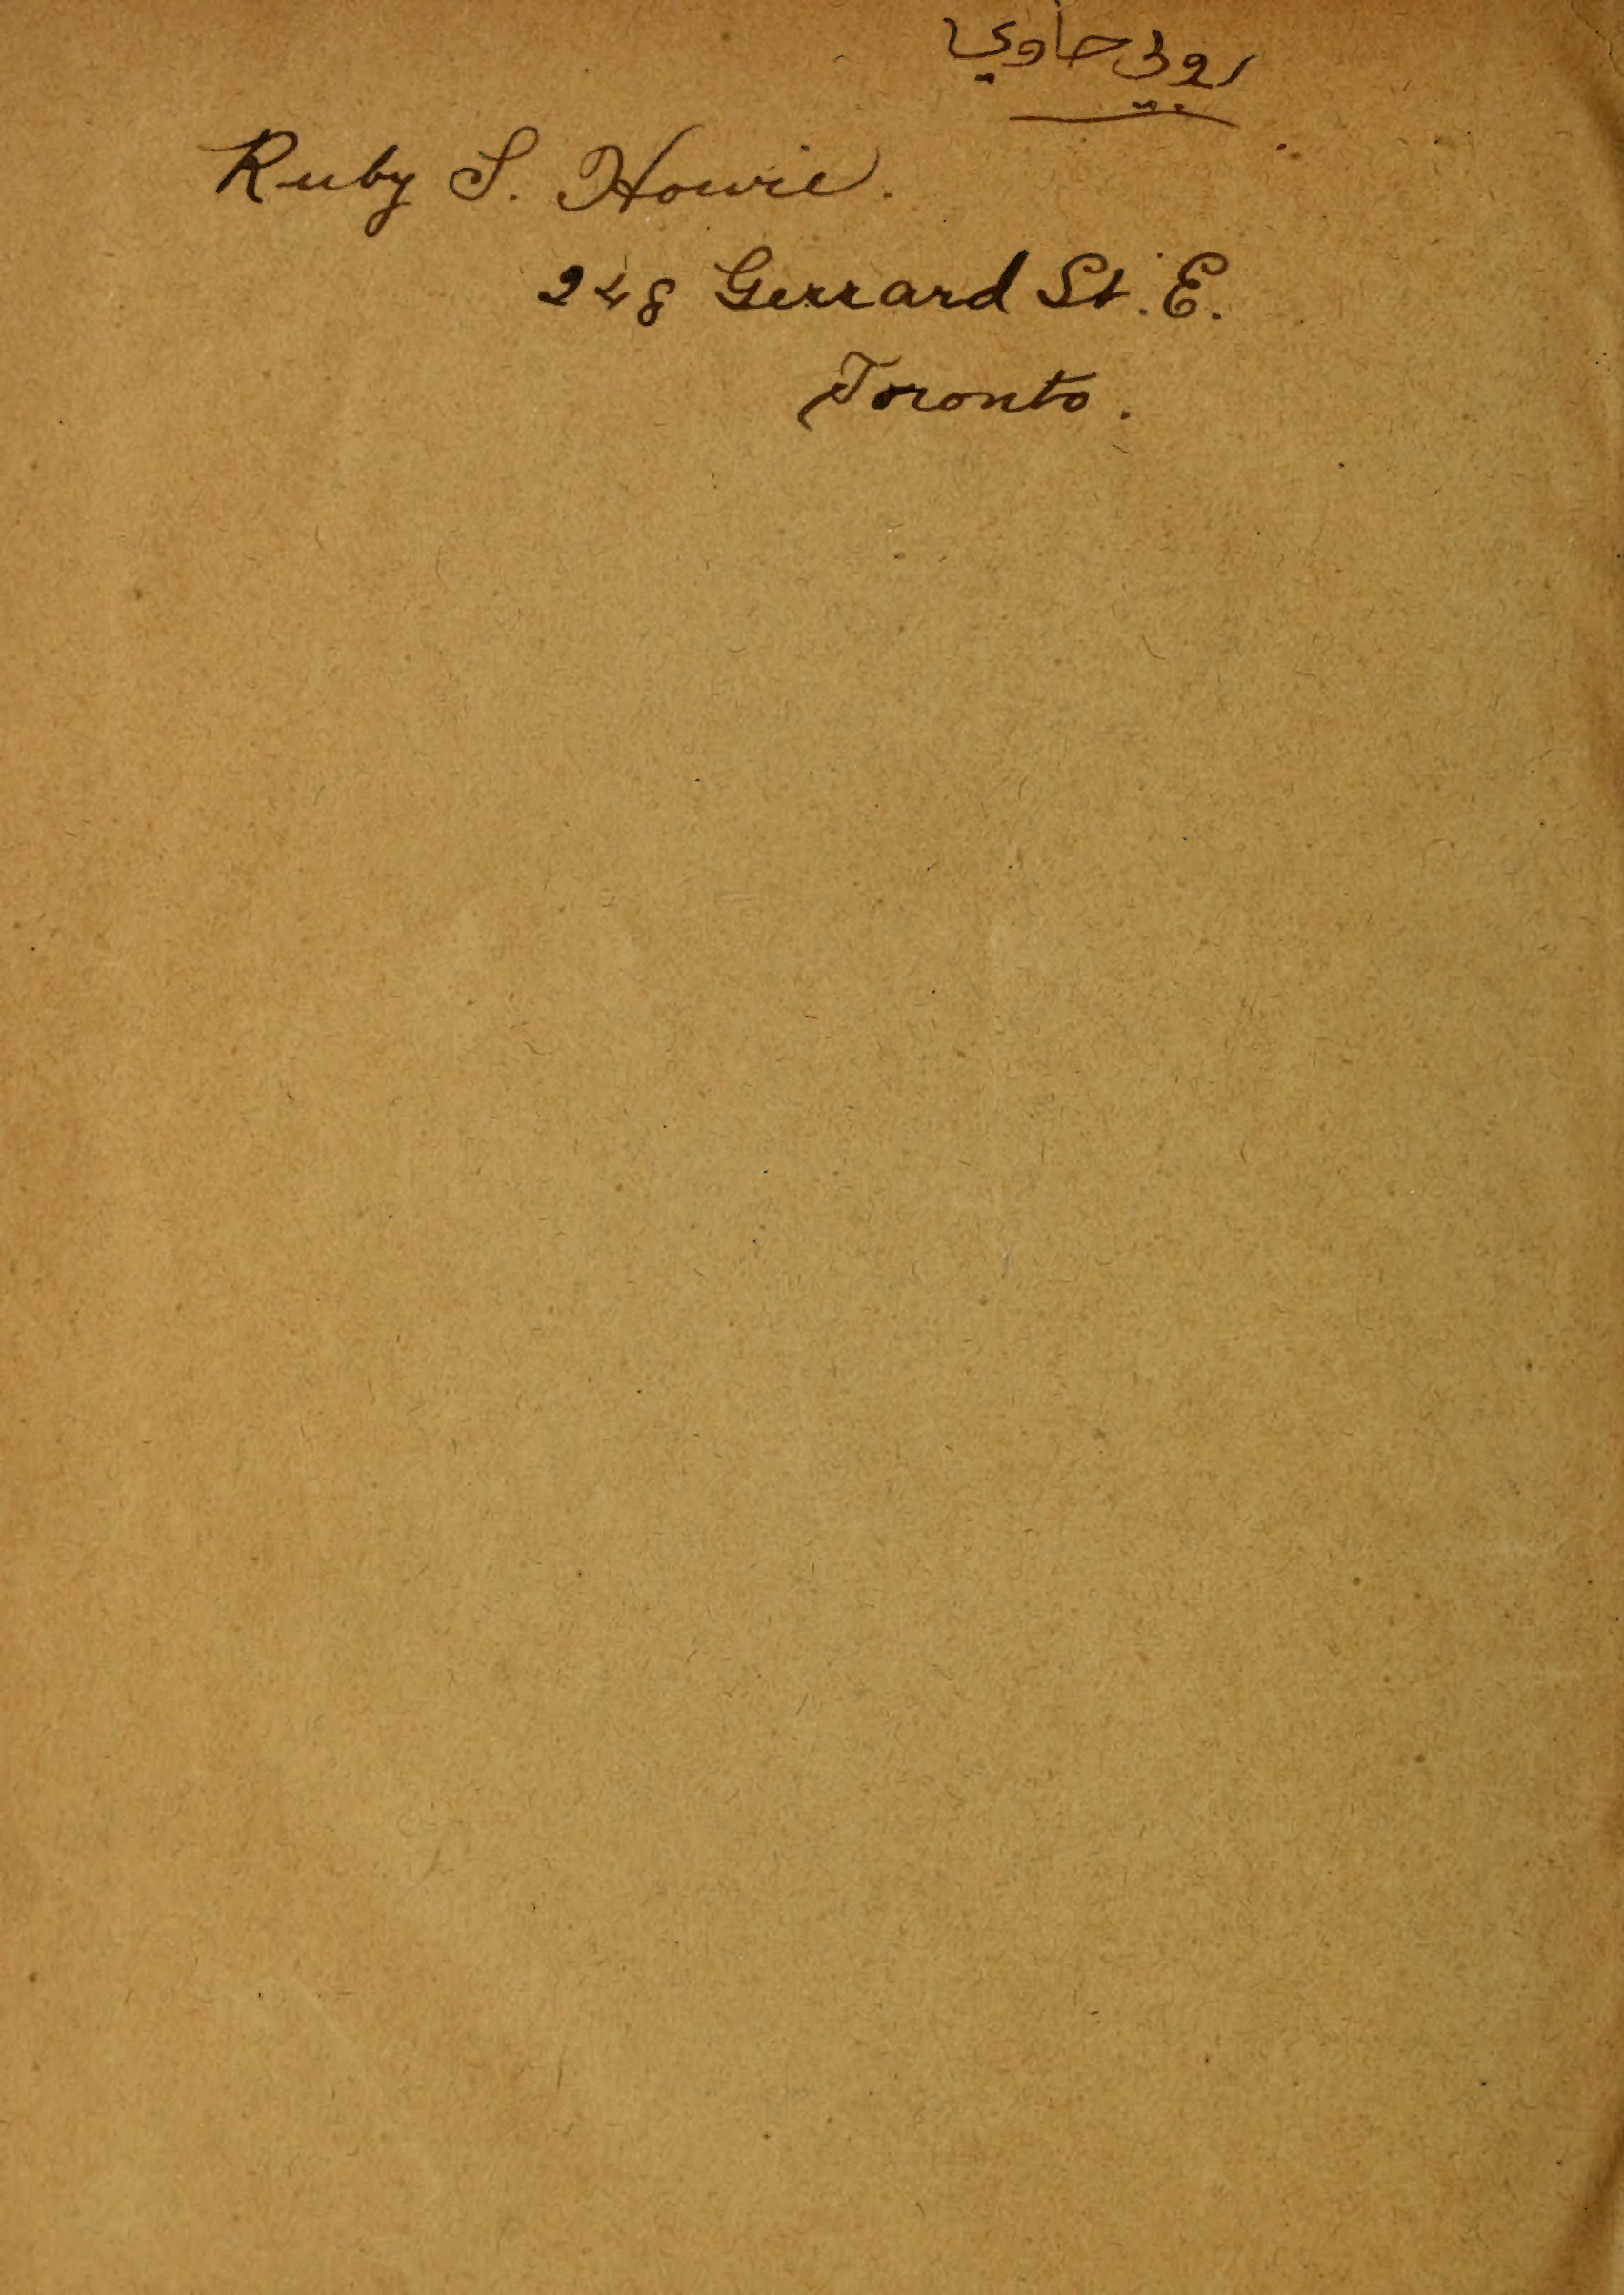 روبي حاوي
Ruby S. Howie.
248 Gerrard St. E.
Toronto.